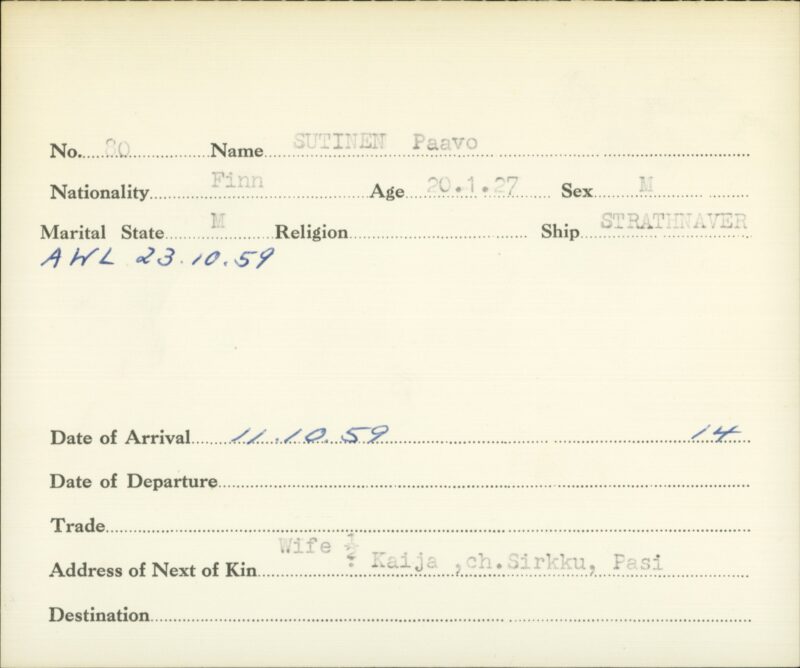 No. 80 Name SUTINEN Paavo
Nationality Finn Age 20.1.27 Sex M
Marital State M Religion Ship STRATHNAVER
AWL 23.10.59
Date of Arrival 11.10.59 14
Date of Departure
Trade
Wife
Address of Next of Kin Kaija ,ch.Sirkku, Pasi
Destination